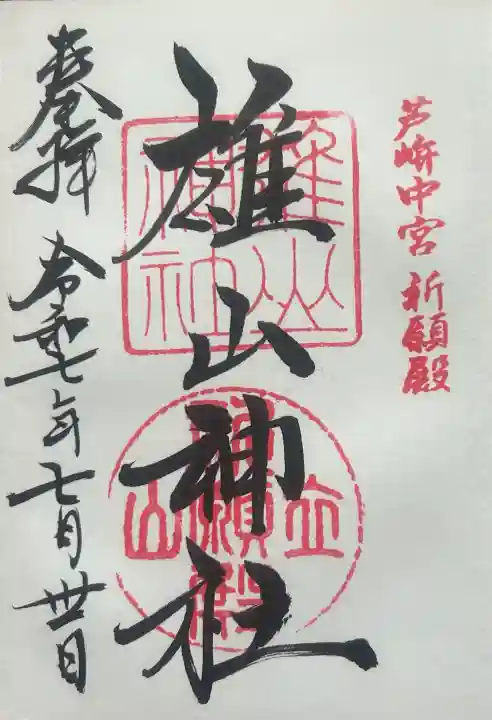 芦峅中宮 祈願殿
雄山神社
雄山
神社
立山
祈願殿
奉拝 令和七年七月丗日